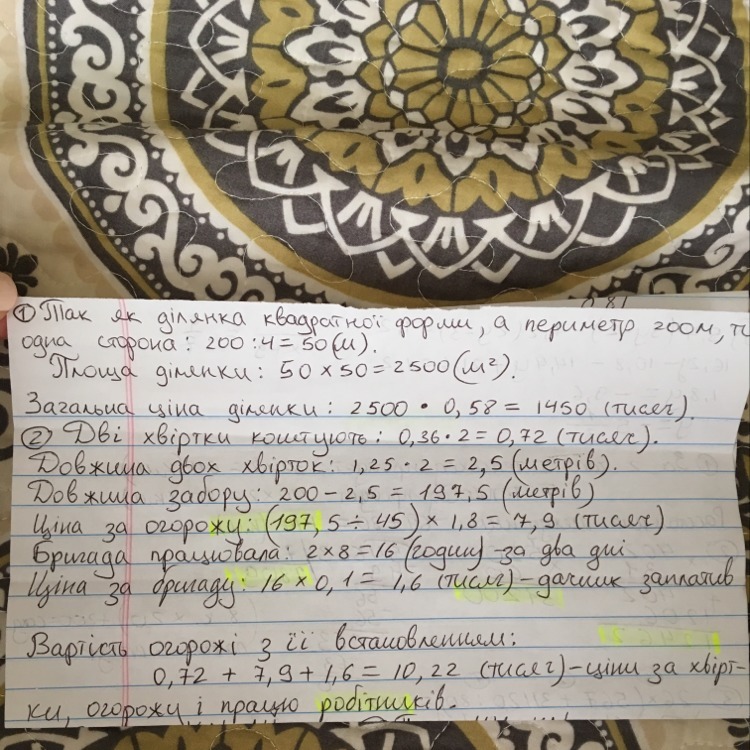 ① Так як ділянка квадратної форми, а периметр 200м, то
одна сторона: 200 : 4 = 50 (м).
Площа ділянки: 50 × 50 = 2500 (м²).
Загальна ціна ділянки: 2500 • 0,58 = 1450 (тисяч).
② Дві хвіртки коштують: 0,36 • 2 = 0,72 (тисяч).
Довжина двох хвірток: 1,25 • 2 = 2,5 (метрів).
Довжина забору: 200 – 2,5 = 197,5 (метрів)
Ціна за огорожу: (197,5 ÷ 45) × 1,8 = 7,9 (тисяч)
Бригада працювала: 2 × 8 = 16 (годин) – за два дні
Ціна за бригаду: 16 × 0,1 = 1,6 (тисяч) – дачник заплатив
Вартість огорожі з її встановленням:
0,72 + 7,9 + 1,6 = 10,22 (тисяч) – ціни за хвірт-
ки, огорожу і працю робітників.